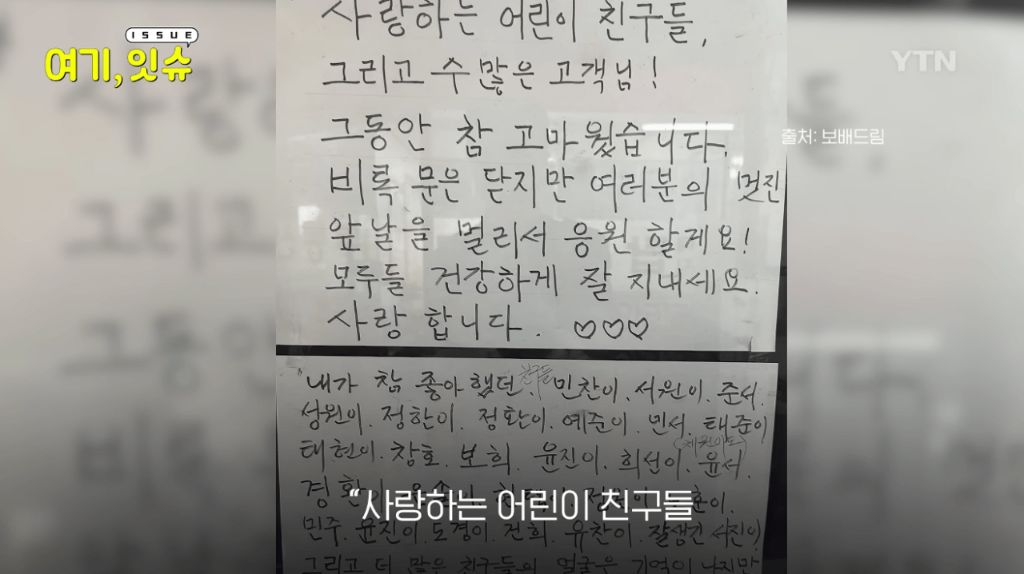 ISSUE
여기, 잇슈
YTN
출처: 보배드림
사랑하는 어린이 친구들,
그리고 수 많은 고객님!
그동안 참 고마웠습니다.
비록 문은 닫지만 여러분의 멋진
앞날을 멀리서 응원 할게요!
모두들 건강하게 잘 지내세요.
사랑 합니다. ♡♡♡
내가 참 좋아했던 친구들 민찬이. 서원이. 준서.
성원이. 정한이. 정환이. 예준이. 민서. 태준이
태현이. 창호. 보희. 윤진이. 희선이. 윤서.
경환
“사랑하는 어린이 친구들
민주. 윤진이. 도경이. 건희. 유찬이. 잘생긴 서진이
그리고 더 많은 친구들의 얼굴은 기억이 나지만